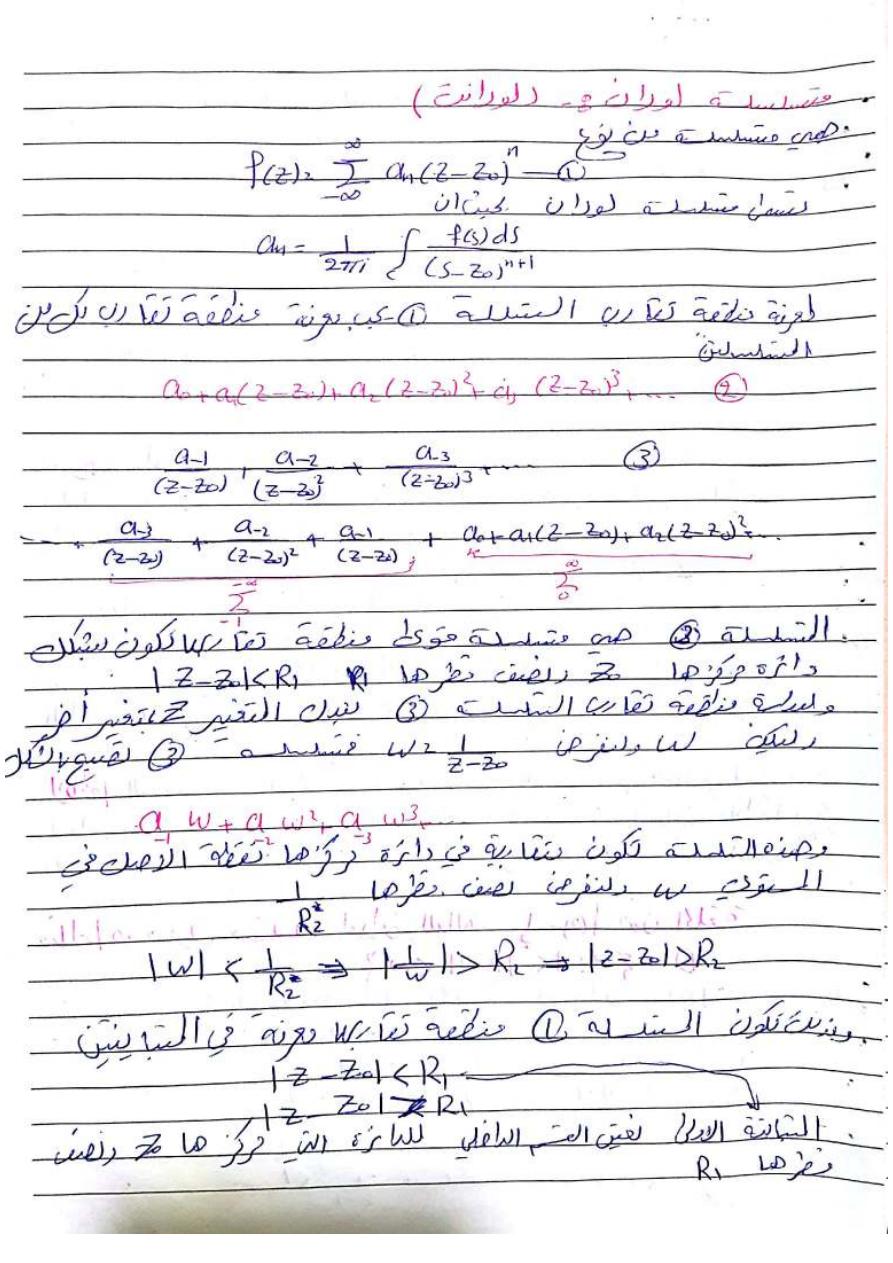 متسلسلة لوران :- (لورانت)
هي متسلسلة من نوع
f(z) = \sum_{-∞}^{∞} a_n (z-z_0)^n — ①
تسمى متسلسلة لوران بحيث ان
a_n = \frac{1}{2πi} ∫ \frac{f(s) ds}{(s-z_0)^{n+1}}
لمعرفة منطقة تقارب المتسلسلة ① يجب معرفة منطقة تقارب كل من
المتسلسلتين
a_0 + a_1(z-z_0) + a_2(z-z_0)^2 + a_3 (z-z_0)^3 + .... ②
\frac{a_{-1}}{(z-z_0)} + \frac{a_{-2}}{(z-z_0)^2} + \frac{a_{-3}}{(z-z_0)^3} + .... ③
.... + \frac{a_{-3}}{(z-z_0)} + \frac{a_{-2}}{(z-z_0)^2} + \frac{a_{-1}}{(z-z_0)} + a_0 + a_1(z-z_0) + a_2(z-z_0)^2 + ...
\sum_{-1}^{-∞} \sum_{0}^{∞}
المتسلسلة ② هي متسلسلة قوى منطقة تقاربها تكون بشكل
دائرة مركزها z_0 ونصف قطرها R_1 |z-z_0|<R_1
ولدراسة منطقة تقارب المتسلسلة ③ نبدل المتغير z بمتغير أخر
وليكن w ولنفرض w = \frac{1}{z-z_0} فمتسلسلة ③ تصبح بالشكل
a_{-1} w + a_{-2} w^2 + a_{-3} w^3 + ...
وهذه المتسلسلة تكون متقاربة في دائرة مركزها نقطة الأصل في
المستوي w ولنفرض نصف قطرها \frac{1}{R_2^*}
|w| < \frac{1}{R_2^*} ⇒ |\frac{1}{w}| > R_2 ⇒ |z-z_0| > R_2
وبذلك تكون المتسلسلة ① منطقة تقاربها معرفة في المتباينتين
|z-z_0| < R_1
|z-z_0| > R_1
المتباينة الاولى تعين القسم الداخلي للدائرة التي مركزها z_0 ونصف
قطرها R_1